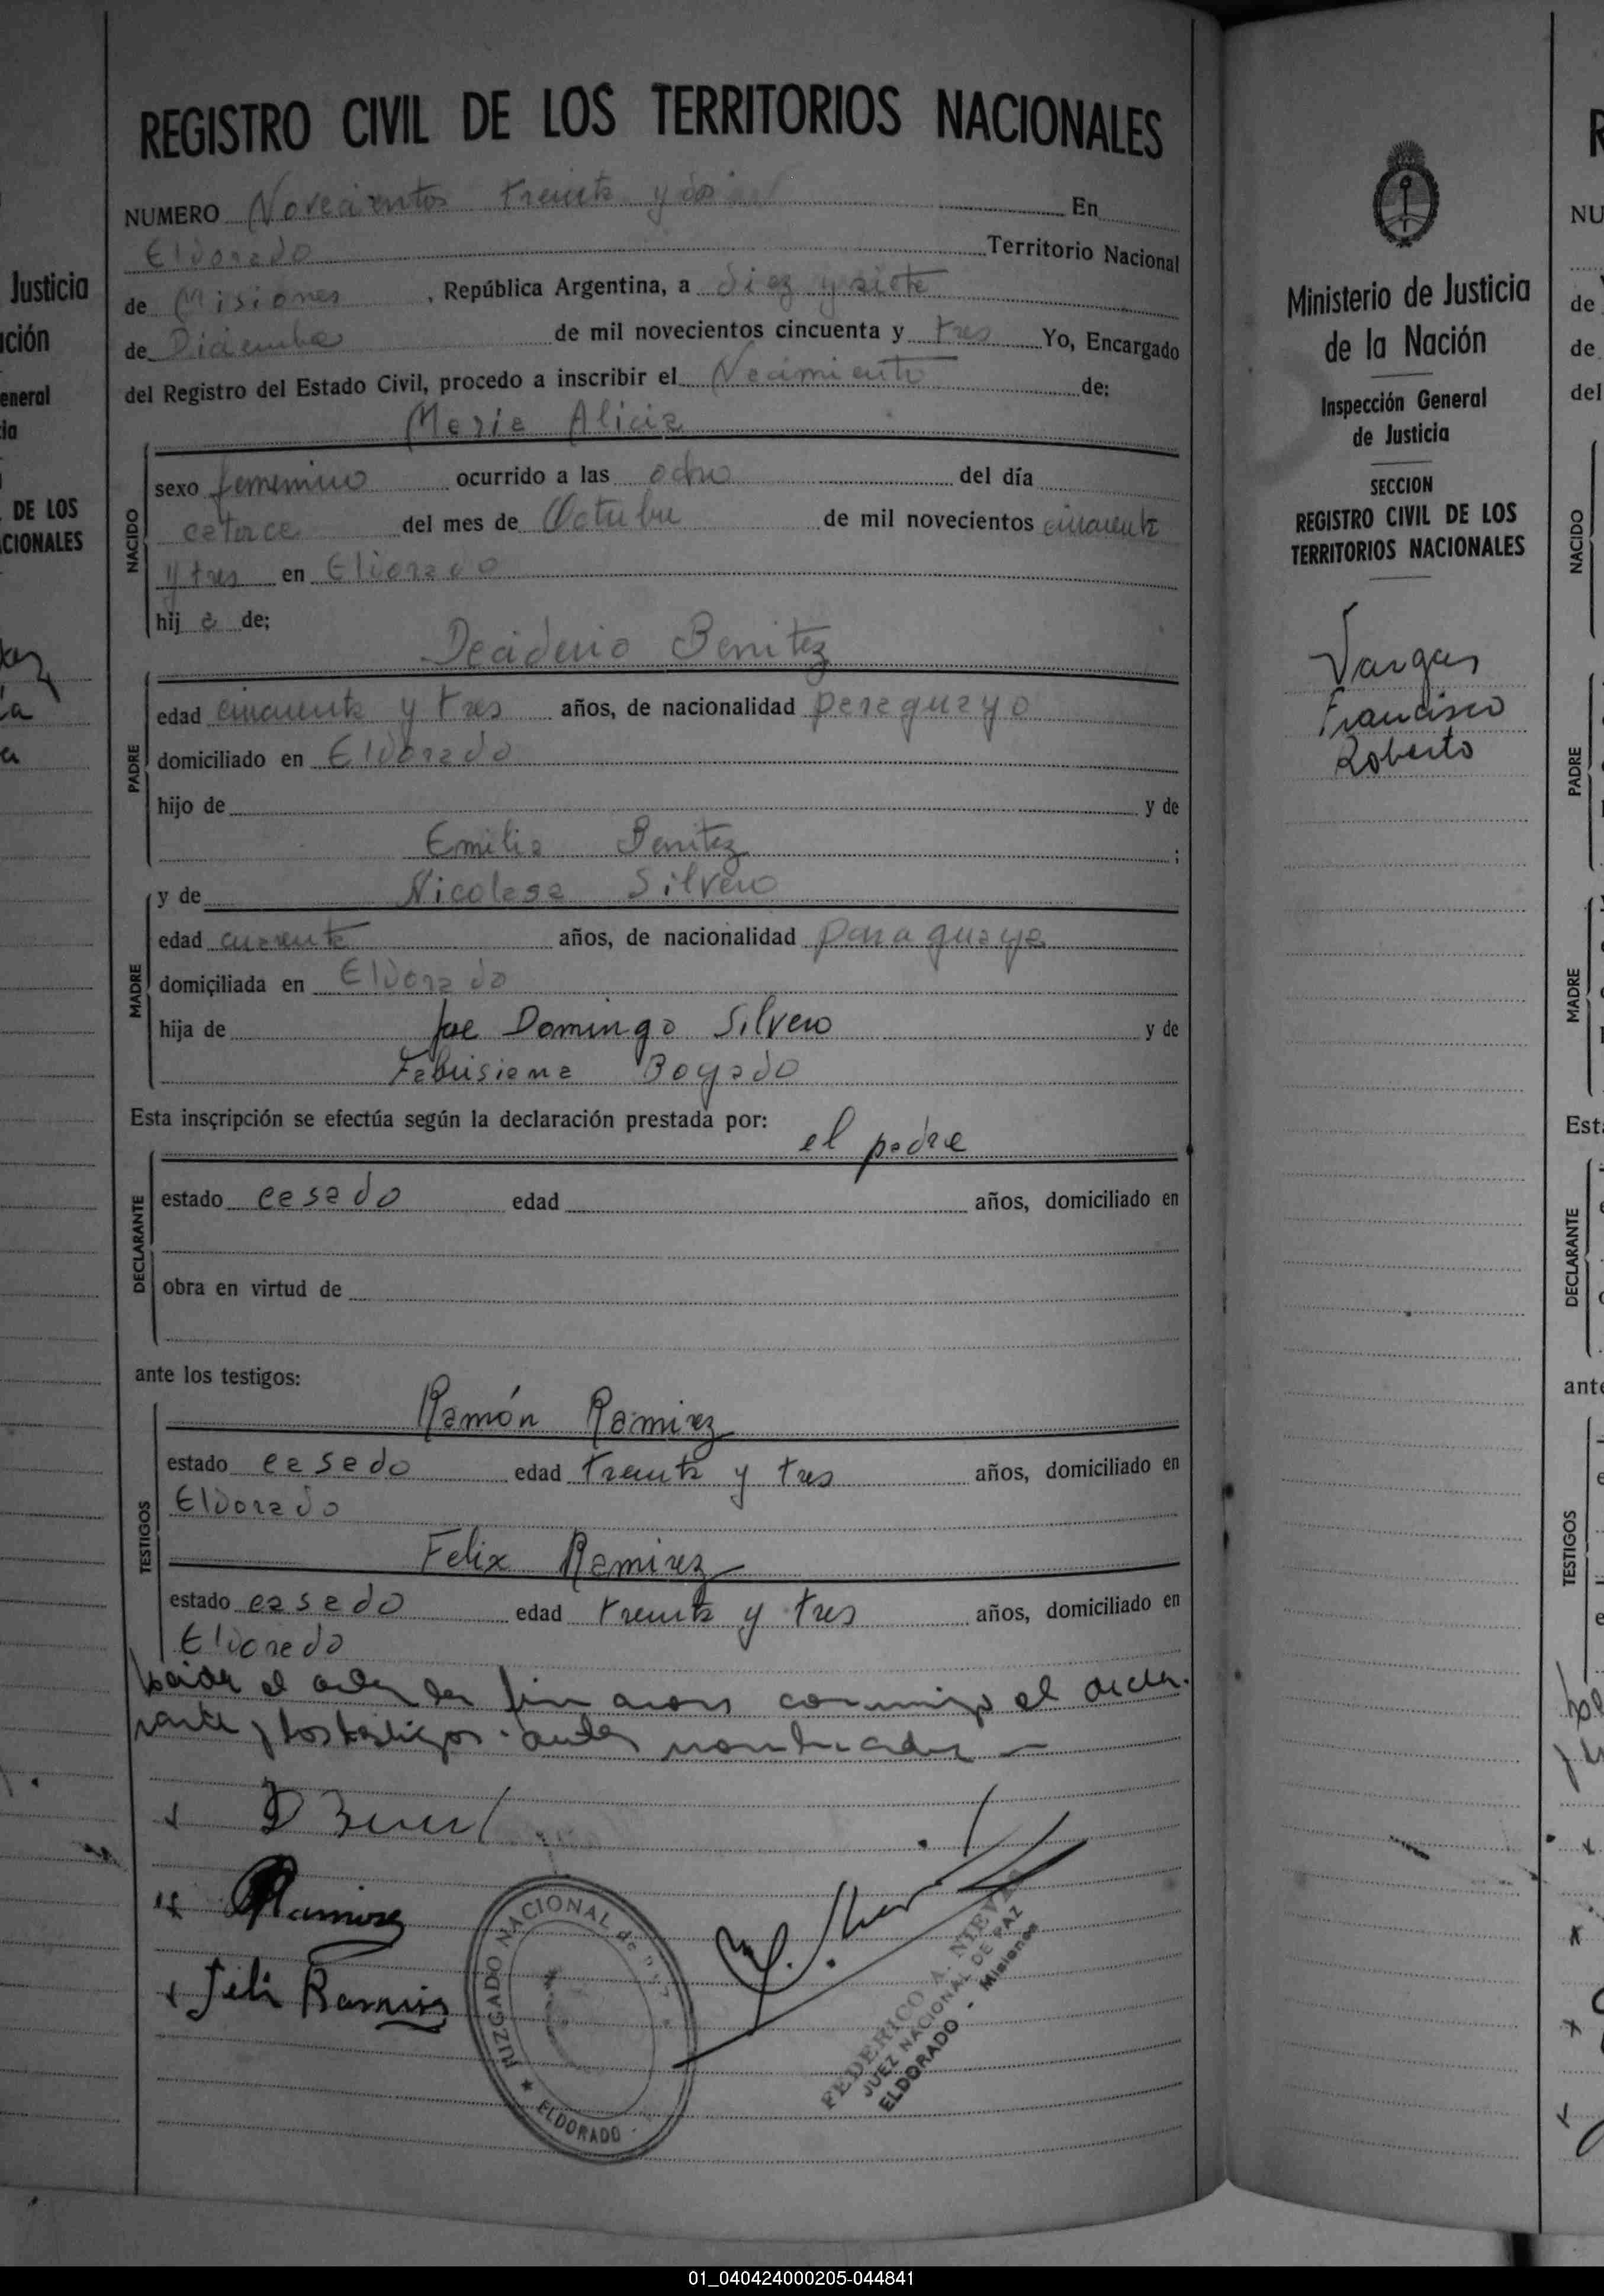 REGISTRO CIVIL DE LOS TERRITORIOS NACIONALES
NUMERO Novecientos treinta y dos En
Eldorado Territorio Nacional
de Misiones, República Argentina, a diez y siete
de Diciembre de mil novecientos cincuenta y tres Yo, Encargado
del Registro del Estado Civil, procedo a inscribir el Nacimiento de:
Maria Alicia
NACIDO
sexo femenino ocurrido a las ocho del día
catorce del mes de Octubre de mil novecientos cincuenta
y tres en Eldorado
hija de:
Deciderio Benitez
PADRE
edad cincuenta y tres años, de nacionalidad paraguayo
domiciliado en Eldorado
hijo de y de
Emilia Benitez ;
y de Nicolasa Silvero
MADRE
edad cuarenta años, de nacionalidad paraguaya
domiciliada en Eldorado
hija de Jose Domingo Silvero y de
Bogado
Esta inscripción se efectúa según la declaración prestada por:
el padre
DECLARANTE
estado casado edad años, domiciliado en
obra en virtud de
ante los testigos:
Ramón Ramirez
TESTIGOS
estado casado edad treinta y tres años, domiciliado en
Eldorado
Felix Ramirez
estado casado edad treinta y tres años, domiciliado en
Eldorado
Leida el acta la firmaron conmigo el decla-
rante y los testigos antes nombrados
Ramirez
Feli Ramirez
JUZGADO NACIONAL de PAZ
ELDORADO
FEDERICO A. NIEVAS
JUEZ NACIONAL DE PAZ
ELDORADO - Misiones
Ministerio de Justicia
de la Nación
Inspección General
de Justicia
SECCION
REGISTRO CIVIL DE LOS
TERRITORIOS NACIONALES
Vargas
Francisco
Roberto
01_040424000205-044841